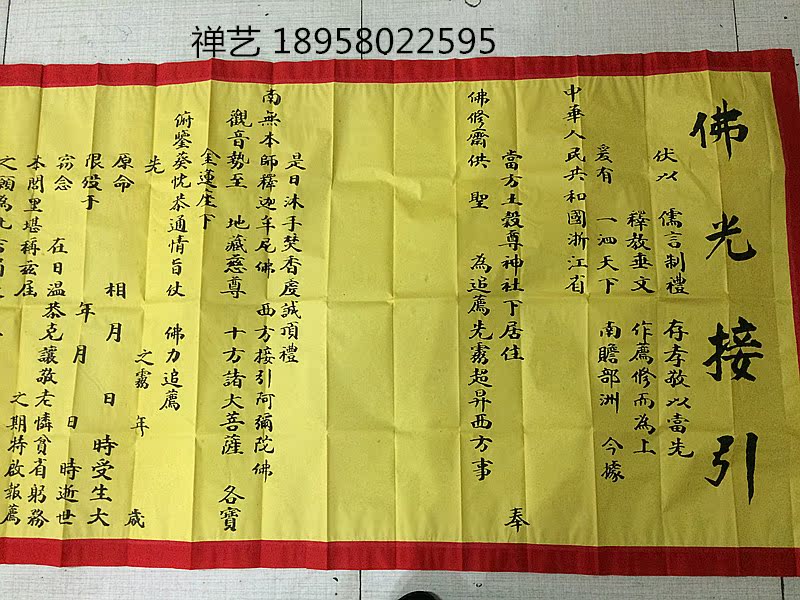 禅艺 18958020595
佛光接引
伏以 儒言制禮 存孝敬以當先
釋教垂文 作薦修而為上
爰有 一泗天下 南贍部洲 今據
中華人民共和國浙江省
當方土穀尊神社下居住 奉
佛修齋供聖 為追薦先靈超昇西方事
是日沐手焚香虔誠頂禮
南無本師釋迦牟尼佛 西方接引阿彌陀佛
觀音勢至 地藏慈尊 十方諸大菩薩 各寶
金蓮座下
俯鑒葵忱恭通情旨仗 佛力追薦
先 之靈 年 歲
原命 相 月 日 時受生大
限歿于 年 月 日 時逝世
竊念 在日溫恭克讓敬老憐貧省躬務
本閭里堪稱茲屆 之期特啟報薦
之願為